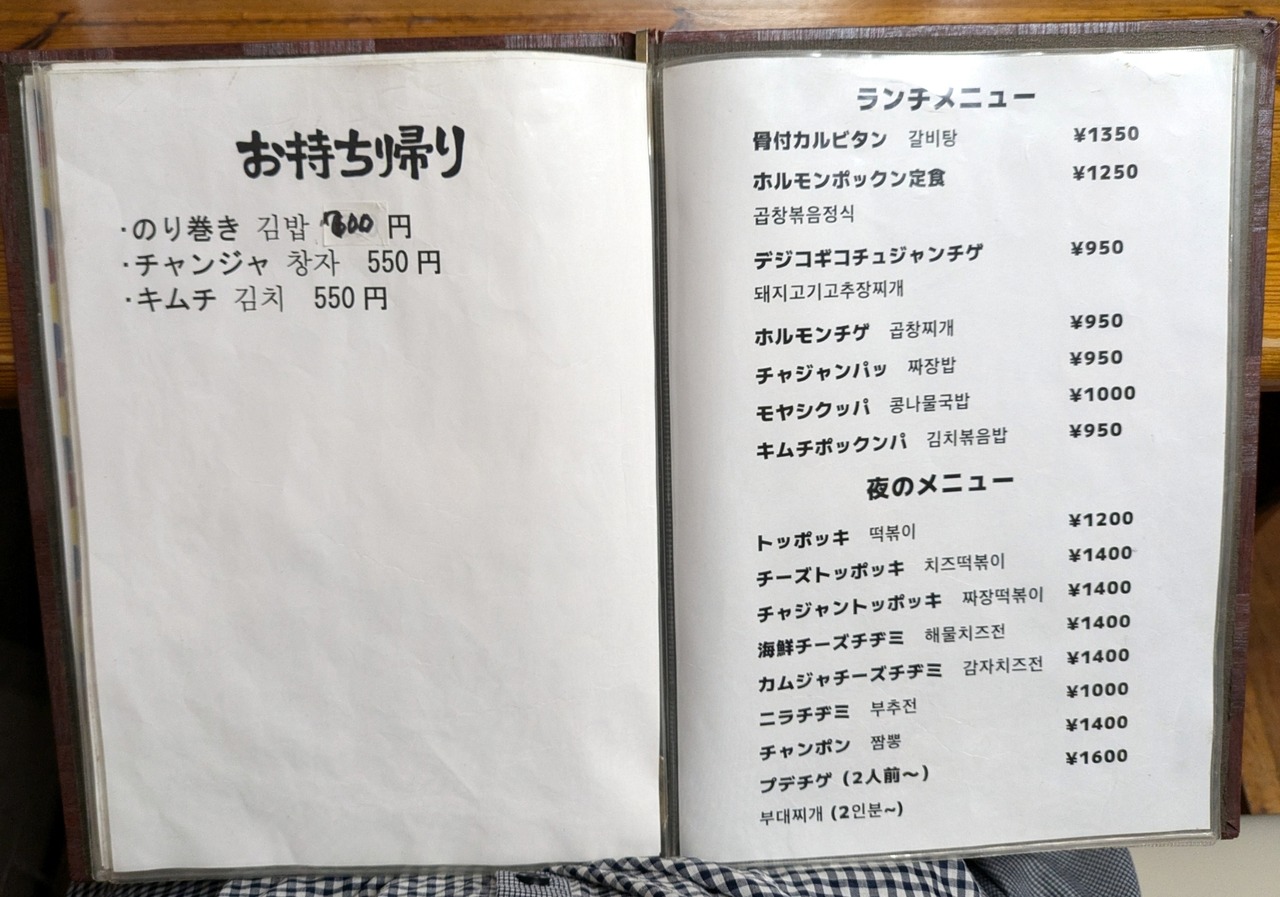 お持ち帰り
・のり巻き 김밥 円
・チャンジャ 창자 550円
・キムチ 김치 550円
ランチメニュー
骨付カルビタン 갈비탕 ¥1350
ホルモンポックン定食 ¥1250
곱창볶음정식
デジコギコチュジャンチゲ ¥950
돼지고기고추장찌개
ホルモンチゲ 곱창찌개 ¥950
チャジャンパッ 짜장밥 ¥950
モヤシクッパ 콩나물국밥 ¥1000
キムチポックンパ 김치볶음밥 ¥950
夜のメニュー
トッポッキ 떡볶이 ¥1200
チーズトッポッキ 치즈떡볶이 ¥1400
チャジャントッポッキ 짜장떡볶이 ¥1400
海鮮チーズチヂミ 해물치즈전 ¥1400
カムジャチーズチヂミ 감자치즈전 ¥1400
ニラチヂミ 부추전 ¥1000
チャンポン 짬뽕 ¥1400
プデチゲ (2人前〜) ¥1600
부대찌개 (2인분~)